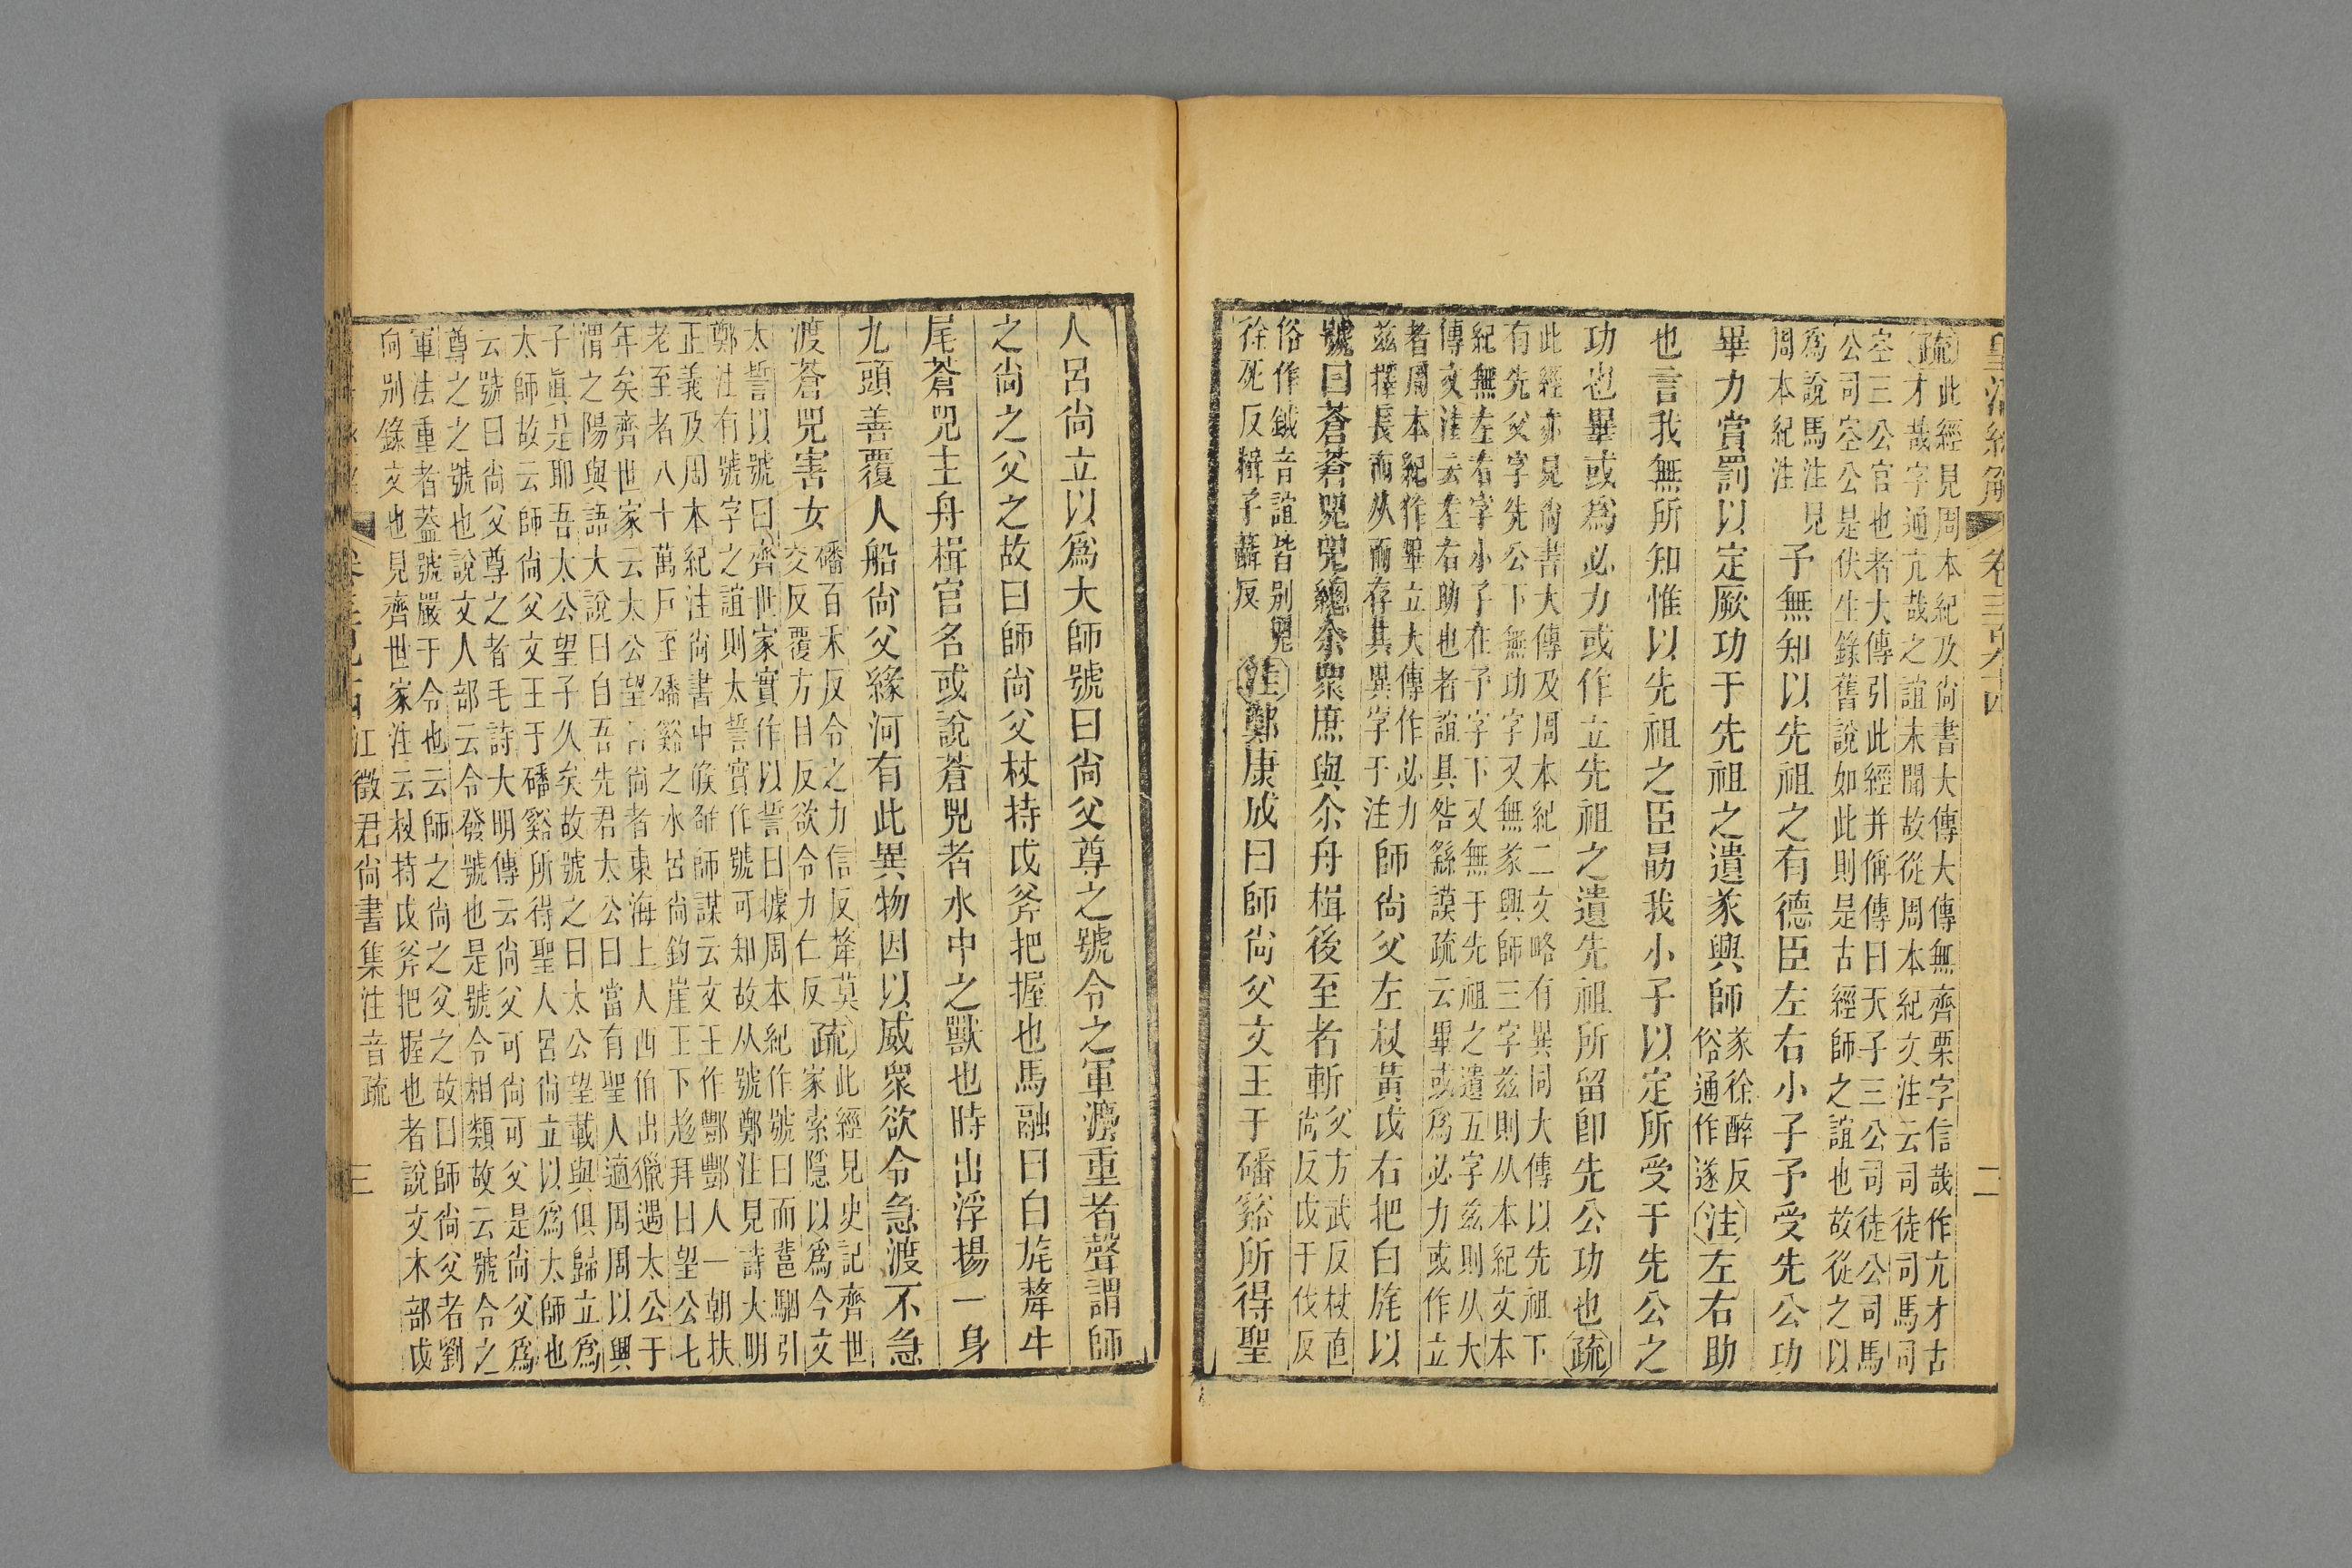 皇清經解 卷三百九十四 二
疏此經見周本紀及尚書大傳大傳無齊栗字信哉作亢才古
才哉字通亢哉之誼未聞故從周本紀文注云司徒司馬司
空三公官也者大傳引此經并偁傳曰天子三公司徒公司馬
公司空公是伏生錄舊說如此則是古經師之誼也故從之以
爲說馬注見
周本紀注
予無知以先祖之有德臣左右小子予受先公功
畢力賞罰以定厥功于先祖之遺㒸興師
㒸徐醉反
俗通作遂
注左右助
也言我無所知惟以先祖之臣勗我小子以定所受于先公之
功也畢或爲必力或作立先祖之遺先祖所留卽先公功也疏
此經亦見尚書大傳及周本紀二文略有異同大傳以先祖下
有先父字先公下無功字又無㒸興師三字茲則从本紀文本
紀無左右字小子在予字下又無于先祖之遺五字茲則从大
傳文注云左右助也者誼具咎繇謨疏云畢或爲必力或作立
者周本紀作畢立大傳作必力
茲擇長而从而存其異字于注
師尚父左杖黃戉右把白旄以
號曰蒼兕蒼兕總尒衆庶與尒舟楫後至者斬
父方武反杖直
尙反戉于伐反
俗作鉞音誼皆別兕
徐死反楫子聶反
注鄭康成曰師尚父文王于磻谿所得聖
人呂尚立以爲大師號曰尚父尊之號令之軍灋重者聲謂師
之尚之父之故曰師尚父杖持戉斧把握也馬融曰白旄犛牛
尾蒼兕主舟楫官名或說蒼兕者水中之獸也時出浮揚一身
九頭善覆人船尚父緣河有此異物因以威衆欲令急渡不急
渡蒼兕害女
磻百禾反令之力信反犛莫
交反覆方目反欲令力仁反
疏此經見史記齊世
家索隱以爲今文
太誓以號曰齊世家實作以誓曰據周本紀作號曰而裴駰引
鄭注有號字之誼則太誓實作號可知故从號鄭注見詩大明
正義及周本紀注尚書中候雒師謀云文王作酆酆人一朝扶
老至者八十萬戶至磻谿之水呂尚釣崖王下趍拜曰望公七
年矣齊世家云太公望呂尚者東海上人西伯出獵遇太公于
渭之陽與語大說曰自吾先君太公曰當有聖人適周周以興
子眞是耶吾太公望子久矣故號之曰太公望載與俱歸立爲
太師故云師尚父文王于磻谿所得聖人呂尚立以爲太師也
云號曰尚父尊之者毛詩大明傳云尚父可尚可父是尚父爲
尊之之號也說文人部云令發號也是號令相類故云號令之
軍法重者蓋號嚴于令也云師之尚之父之故曰師尚父者劉
向別錄文也見齊世家注云杖持戉斧把握也者說文木部戉
江徵君尚書集注音疏 三